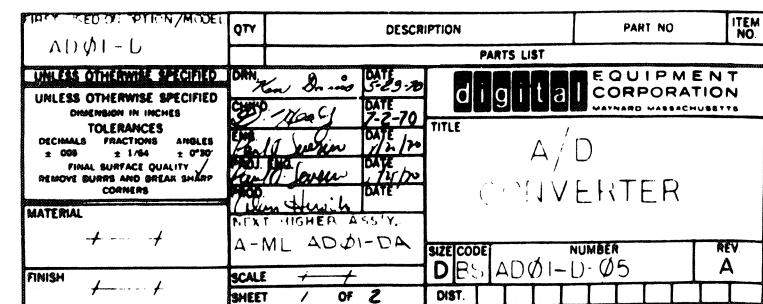 FIRST USED ON OPTION/MODEL
AD01-D
QTY DESCRIPTION PART NO ITEM NO.
PARTS LIST
UNLESS OTHERWISE SPECIFIED
UNLESS OTHERWISE SPECIFIED
DIMENSION IN INCHES
TOLERANCES
DECIMALS FRACTIONS ANGLES
± 005 ± 1/64 ± 0°30'
FINAL SURFACE QUALITY
REMOVE BURRS AND BREAK SHARP
CORNERS
MATERIAL
FINISH
DRN. DATE
5-29-70
CHK'D. DATE
7-2-70
ENG. DATE
PROJ. ENG. DATE
PROD. DATE
NEXT HIGHER ASS'Y.
A-ML ADØ1-DA
SCALE
SHEET 1 OF 2
digital EQUIPMENT
CORPORATION
MAYNARD MASSACHUSETTS
TITLE
A/D
CONVERTER
SIZE CODE NUMBER REV.
D BS ADØ1-D-Ø5 A
DIST.